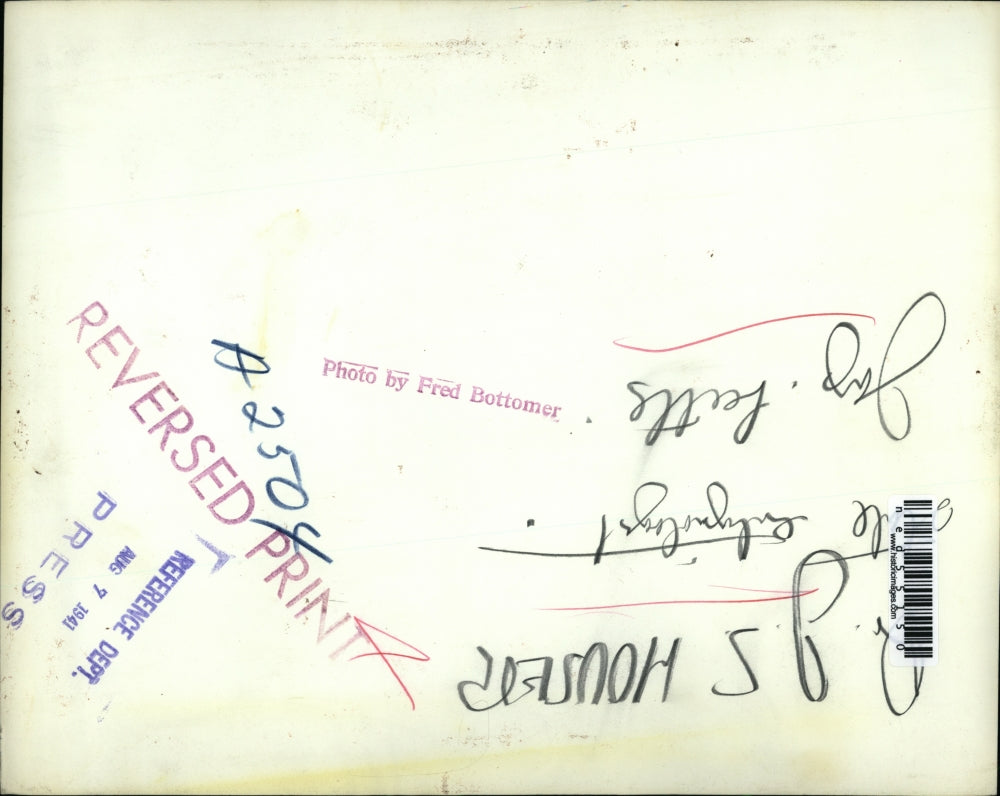 REVERSED PRINT
A 2504
Photo by Fred Bottomer
PRESS
AUG 7 1941
REFERENCE DEPT.
J. S HOUSER
entymologist
Jap. beetles
ned55150
www.historicimages.com